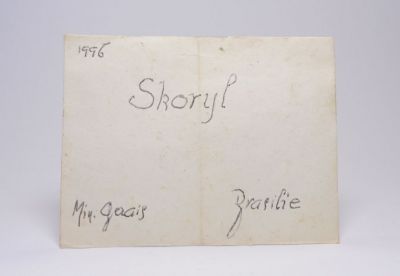 1996
Skoryl
Min. Gaais Brasilie